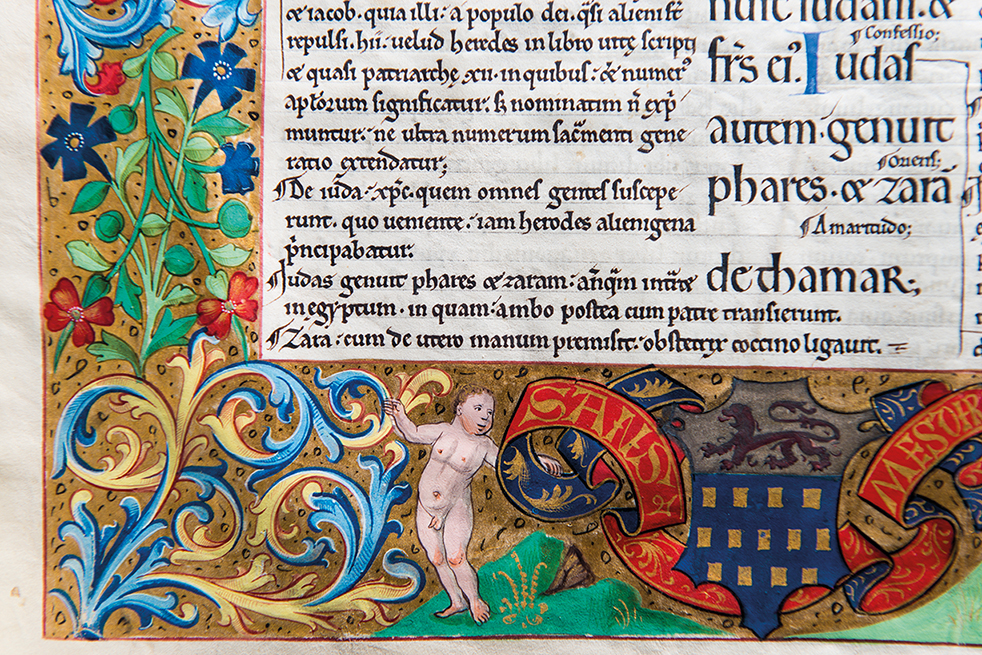 & iacob. quia illi. a populo dei. q̃si alieni st̃
repulsi. hii. uelud heredes in libro uitę scripti
& quasi patriarchę. xii. in quibus. & numer᷒
apl̃orum significatur. sꝫ nominatim ñ exp̃
muntur. ne ultra numerum sac̃menti gene
ratio extendatur;
¶De iuda. xp̃c. quem omnes gentes suscepe
runt. quo ueniente. iam herodes alienigena
p̃ncipabatur.
¶Iudas genuit phares & zaram. añq̃m int̃rẽt
in egyptum. in quam. ambo postea cum patre transierunt.
¶Zara. cum de utero manum premisit. obstetrix coccino ligauit.
iudam. &
¶Confessio;
fr̃s ei᷒. Iudas
autem. genuit
¶oriens;
phares. & zarã
¶Amaritudo;
de thamar;
MESOR